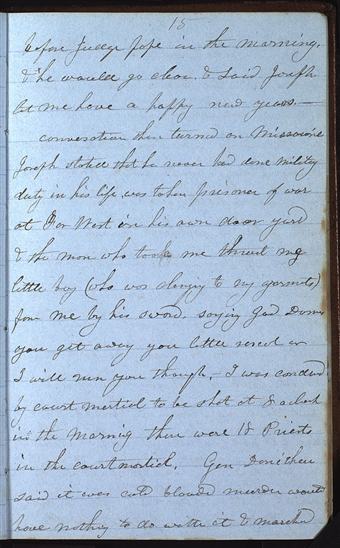 15
before Judge Pope in the morning.
& he would go clear. & said Joseph
let me have a happy new years. —
conversation then turned on Missourie
Joseph stated that he never had done military
duty in his life. was taken prisoner of war
at Far West in his own door yard
& the man who took me thrust my
little boy (who was clinging to my garments)
from me by his sword. saying God Damn
you get away you little rascal or
I will run you through. — I was condemd
by court martial to be shot at 8 oclock
in the morning there were 18 Priests
in the court martial. Gen Donithen
said it was cold blooded murder would
have nothing to do with it & marched